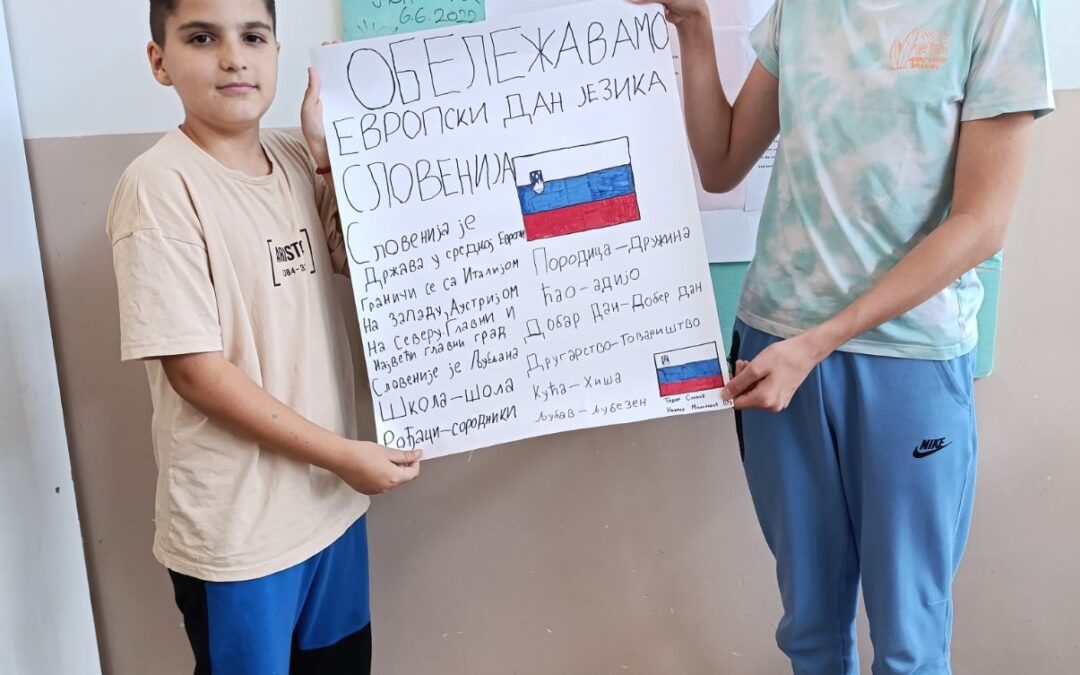 6.6.2022
ОБЕЛЕЖАВАМО
ЕВРОПСКИ ДАН ЈЕЗИКА
СЛОВЕНИЈА
Словенија је
Држава у средњој Европи
Граничи се са Италијом
на западу, Аустријом
на Северу. Главни и
највећи главни град
Словеније је Љубљана
Школа–шола
Рођаци–сородники
Породица–Дружина
Ћао–адијо
Добар Дан–Добер Дан
Другарство–Товариштво
Кућа–Хиша
Љубав–љубезен
NIKE